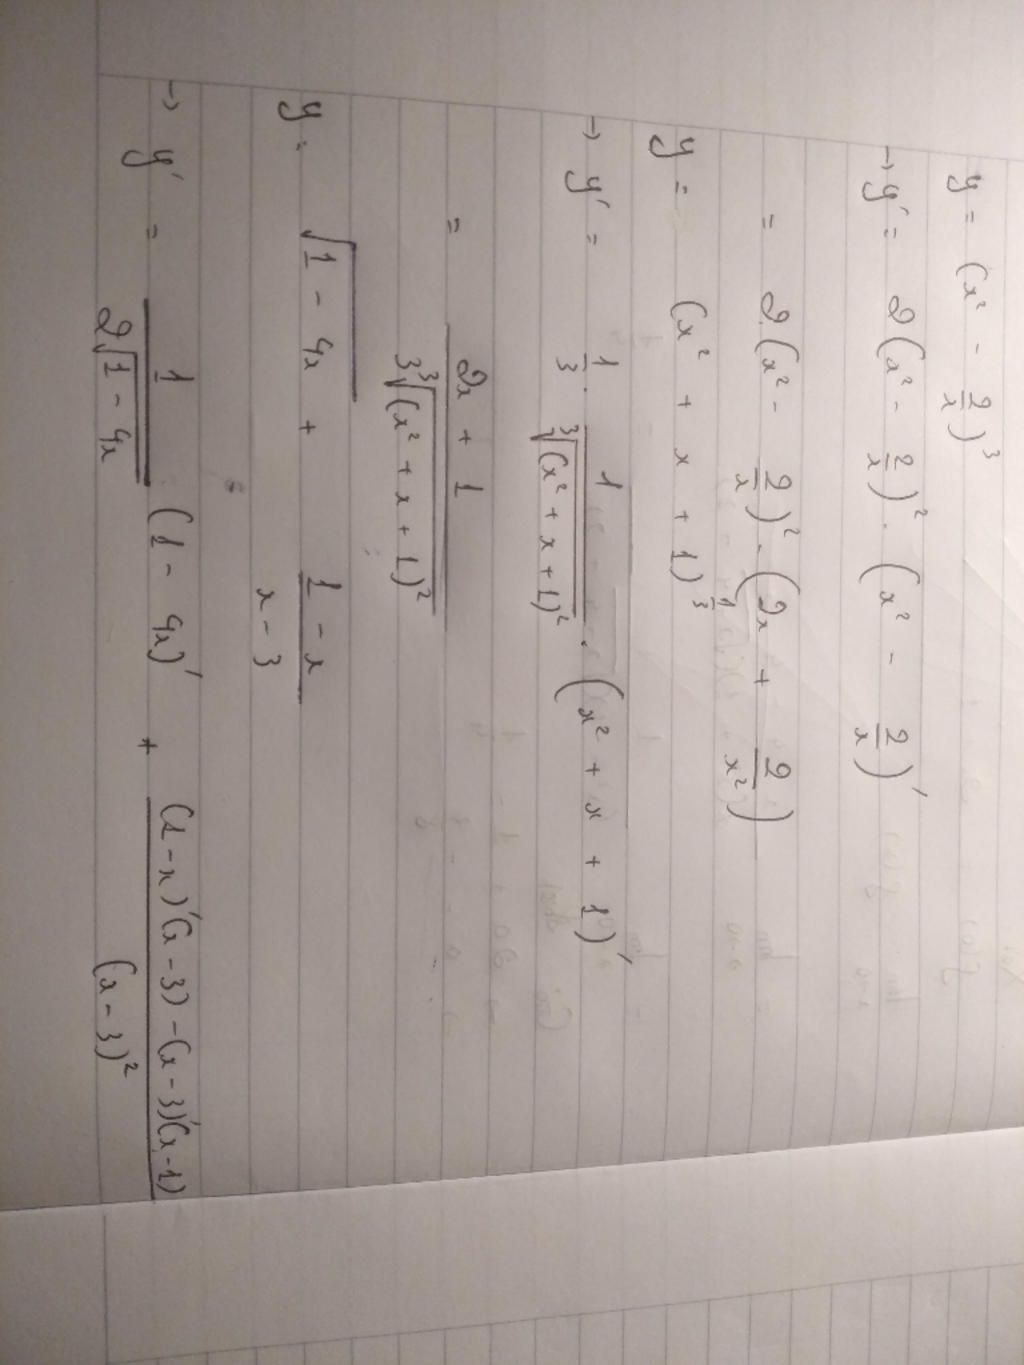 y = (x² - 2/x)³
→ y' = 2(x² - 2/x)² . (x² - 2/x)'
= 2.(x² - 2/x)² . (2x + 2/x²)
y = (x² + x + 1)^(1/3)
→ y' = 1/3 . 1/∛(x² + x + 1)² . (x² + x + 1)'
= (2x + 1)/(3∛(x² + x + 1)²)
y = √(1 - 4x) + (1 - x)/(x - 3)
→ y' = 1/(2√(1 - 4x)) (1 - 4x)' + ((1 - x)'(x - 3) - (x - 3)'(x - 1))/(x - 3)²